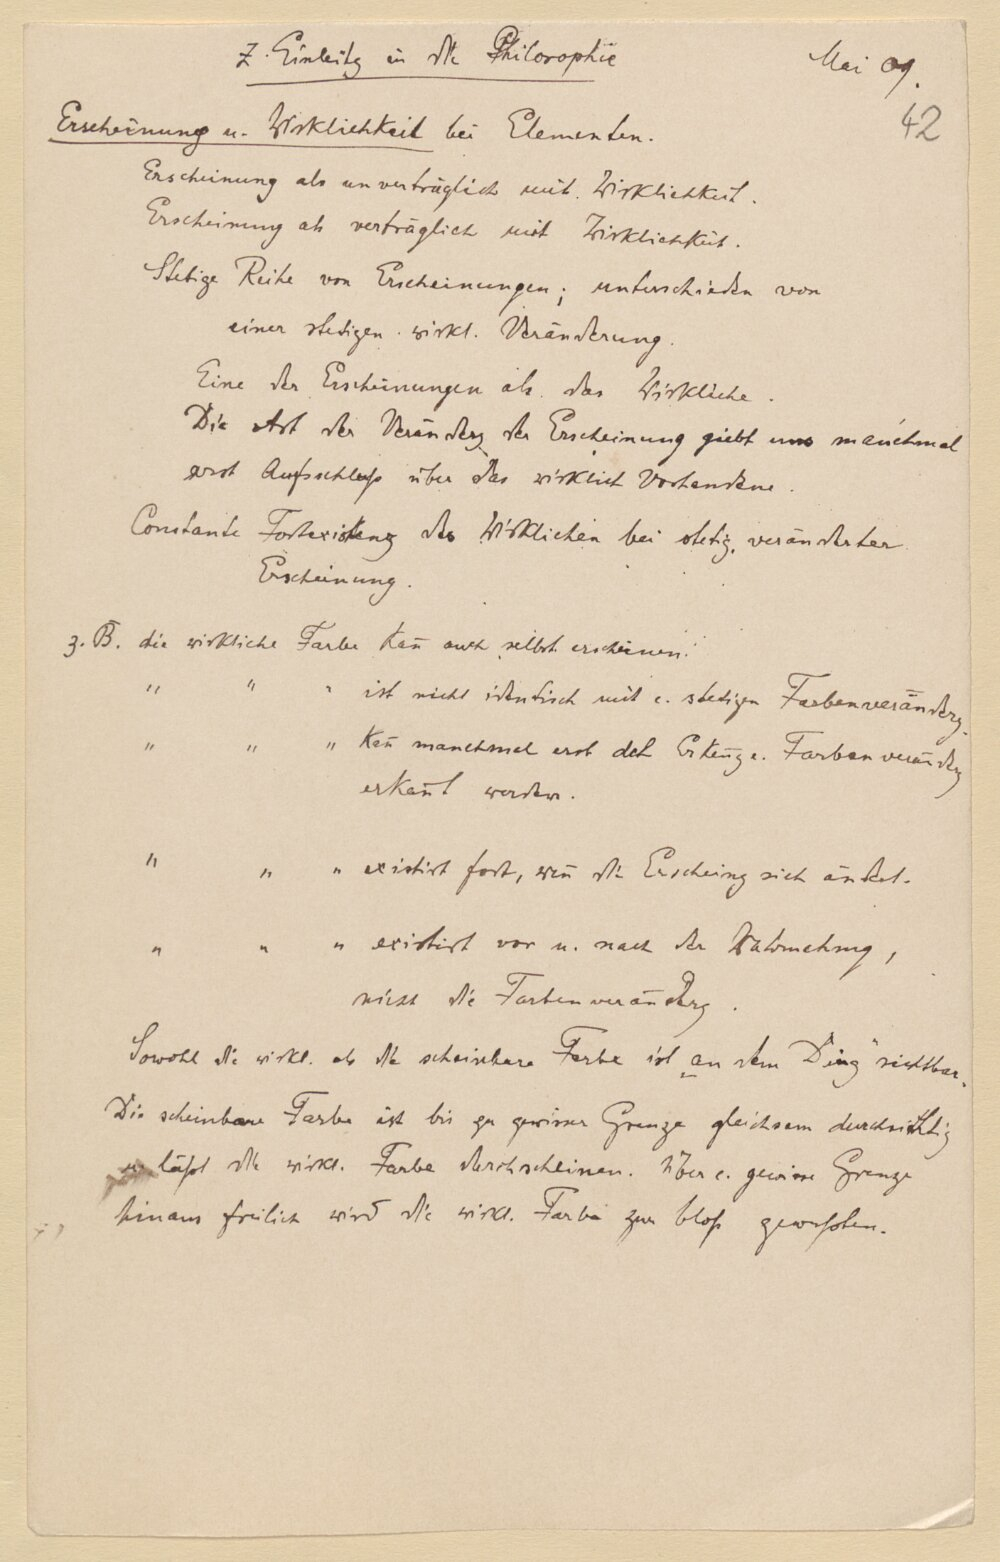 Z. Einleitg in die Philosophie
Mai 09.
42
Erscheinung u. Wirklichkeit bei Elementen.
Erscheinung als unverträglich mit Wirklichkeit.
Erscheinung als verträglich mit Wirklichkeit.
Stetige Reihe von Erscheinungen; unterschieden von
einer stetigen wirkl. Veränderung.
Eine der Erscheinungen als das Wirkliche.
Die Art der Veränderg der Erscheinung giebt uns manchmal
erst Aufschluß über das wirklich Vorhandene.
Constante Fortexistenz des Wirklichen bei stetig veränderter
Erscheinung.
z. B. die wirkliche Farbe kan̄ auch selbst erscheinen.
" " " ist nicht identisch mit e. stetigen Farbenveränderg.
" " " kan̄ manchmal erst dch Erken̄g e. Farbenveränderg
erkan̄t werden.
" " " existirt fort, wen̄ die Erscheing sich ändert.
" " " existirt vor u. nach der Wahrnehmg,
nicht die Farbenveränderg.
Sowohl die wirkl. als die scheinbare Farbe ist an dem Ding "sichtbar.
Die scheinbare Farbe ist bis zu gewisser Grenze gleichsam durchsichtig
u. läßt die wirkl. Farbe durchscheinen. Über e. gewisse Grenze
hinaus freilich wird die wirkl. Farbe zur bloß gewußten.